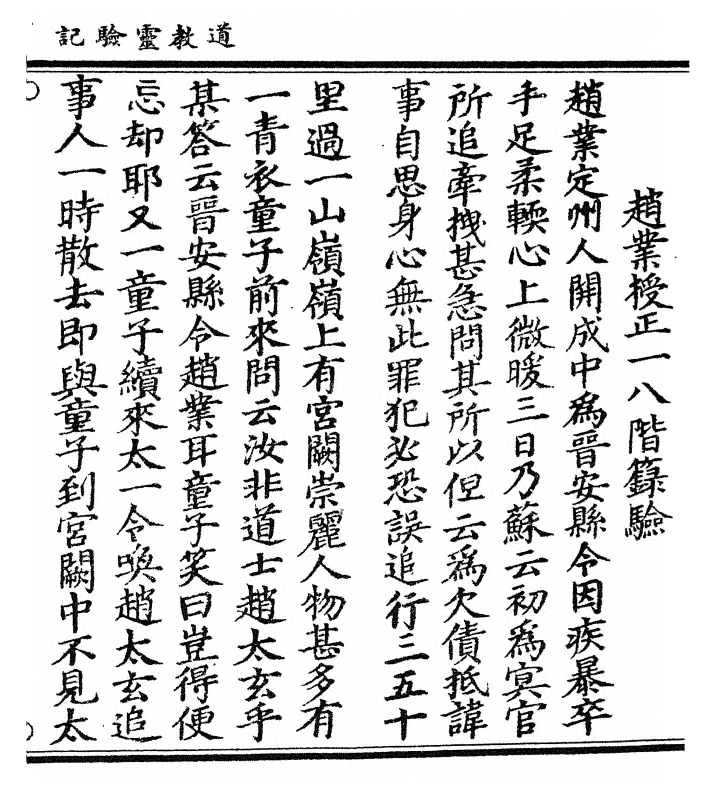 道教靈驗記
趙業授正一八階籙驗
趙業定州人開成中為晉安縣令因疾暴卒
手足柔輭心上微暖三日乃蘇云初為冥官
所追牽拽甚急問其所以但云為欠債抵諱
事自思身心無此罪犯必恐誤追行三五十
里過一山嶺嶺上有宮闕崇麗人物甚多有
一青衣童子前來問云汝非道士趙太玄乎
某答云晉安縣令趙業耳童子笑曰豈得便
忘却耶又一童子續來太一令喚趙太玄追
事人一時散去即與童子到宮闕中不見太